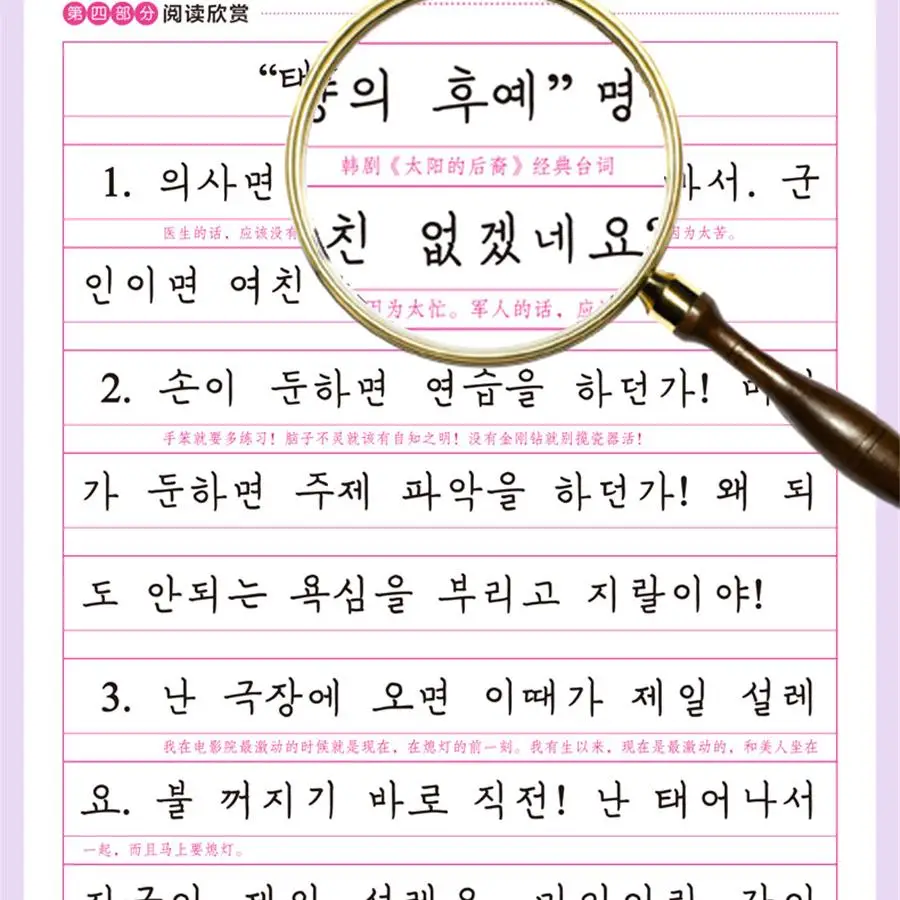 第四部分 阅读欣赏
의 후예” 명
韩剧《太阳的后裔》经典台词
1. 의사면 서. 군
医生的话，应该没有 因为太苦。
친 없겠네요
因为太忙。军人的话，应
인이면 여친
2. 손이 둔하면 연습을 하던가!
手笨就要多练习！脑子不灵就该有自知之明！没有金刚钻就别揽瓷器活！
가 둔하면 주제 파악을 하던가! 왜 되
도 안되는 욕심을 부리고 지랄이야!
3. 난 극장에 오면 이때가 제일 설레
我在电影院最激动的时候就是现在，在熄灯的前一刻。我有生以来，现在是最激动的，和美人坐在
요. 불 꺼지기 바로 직전! 난 태어나서
一起，而且马上要熄灯。